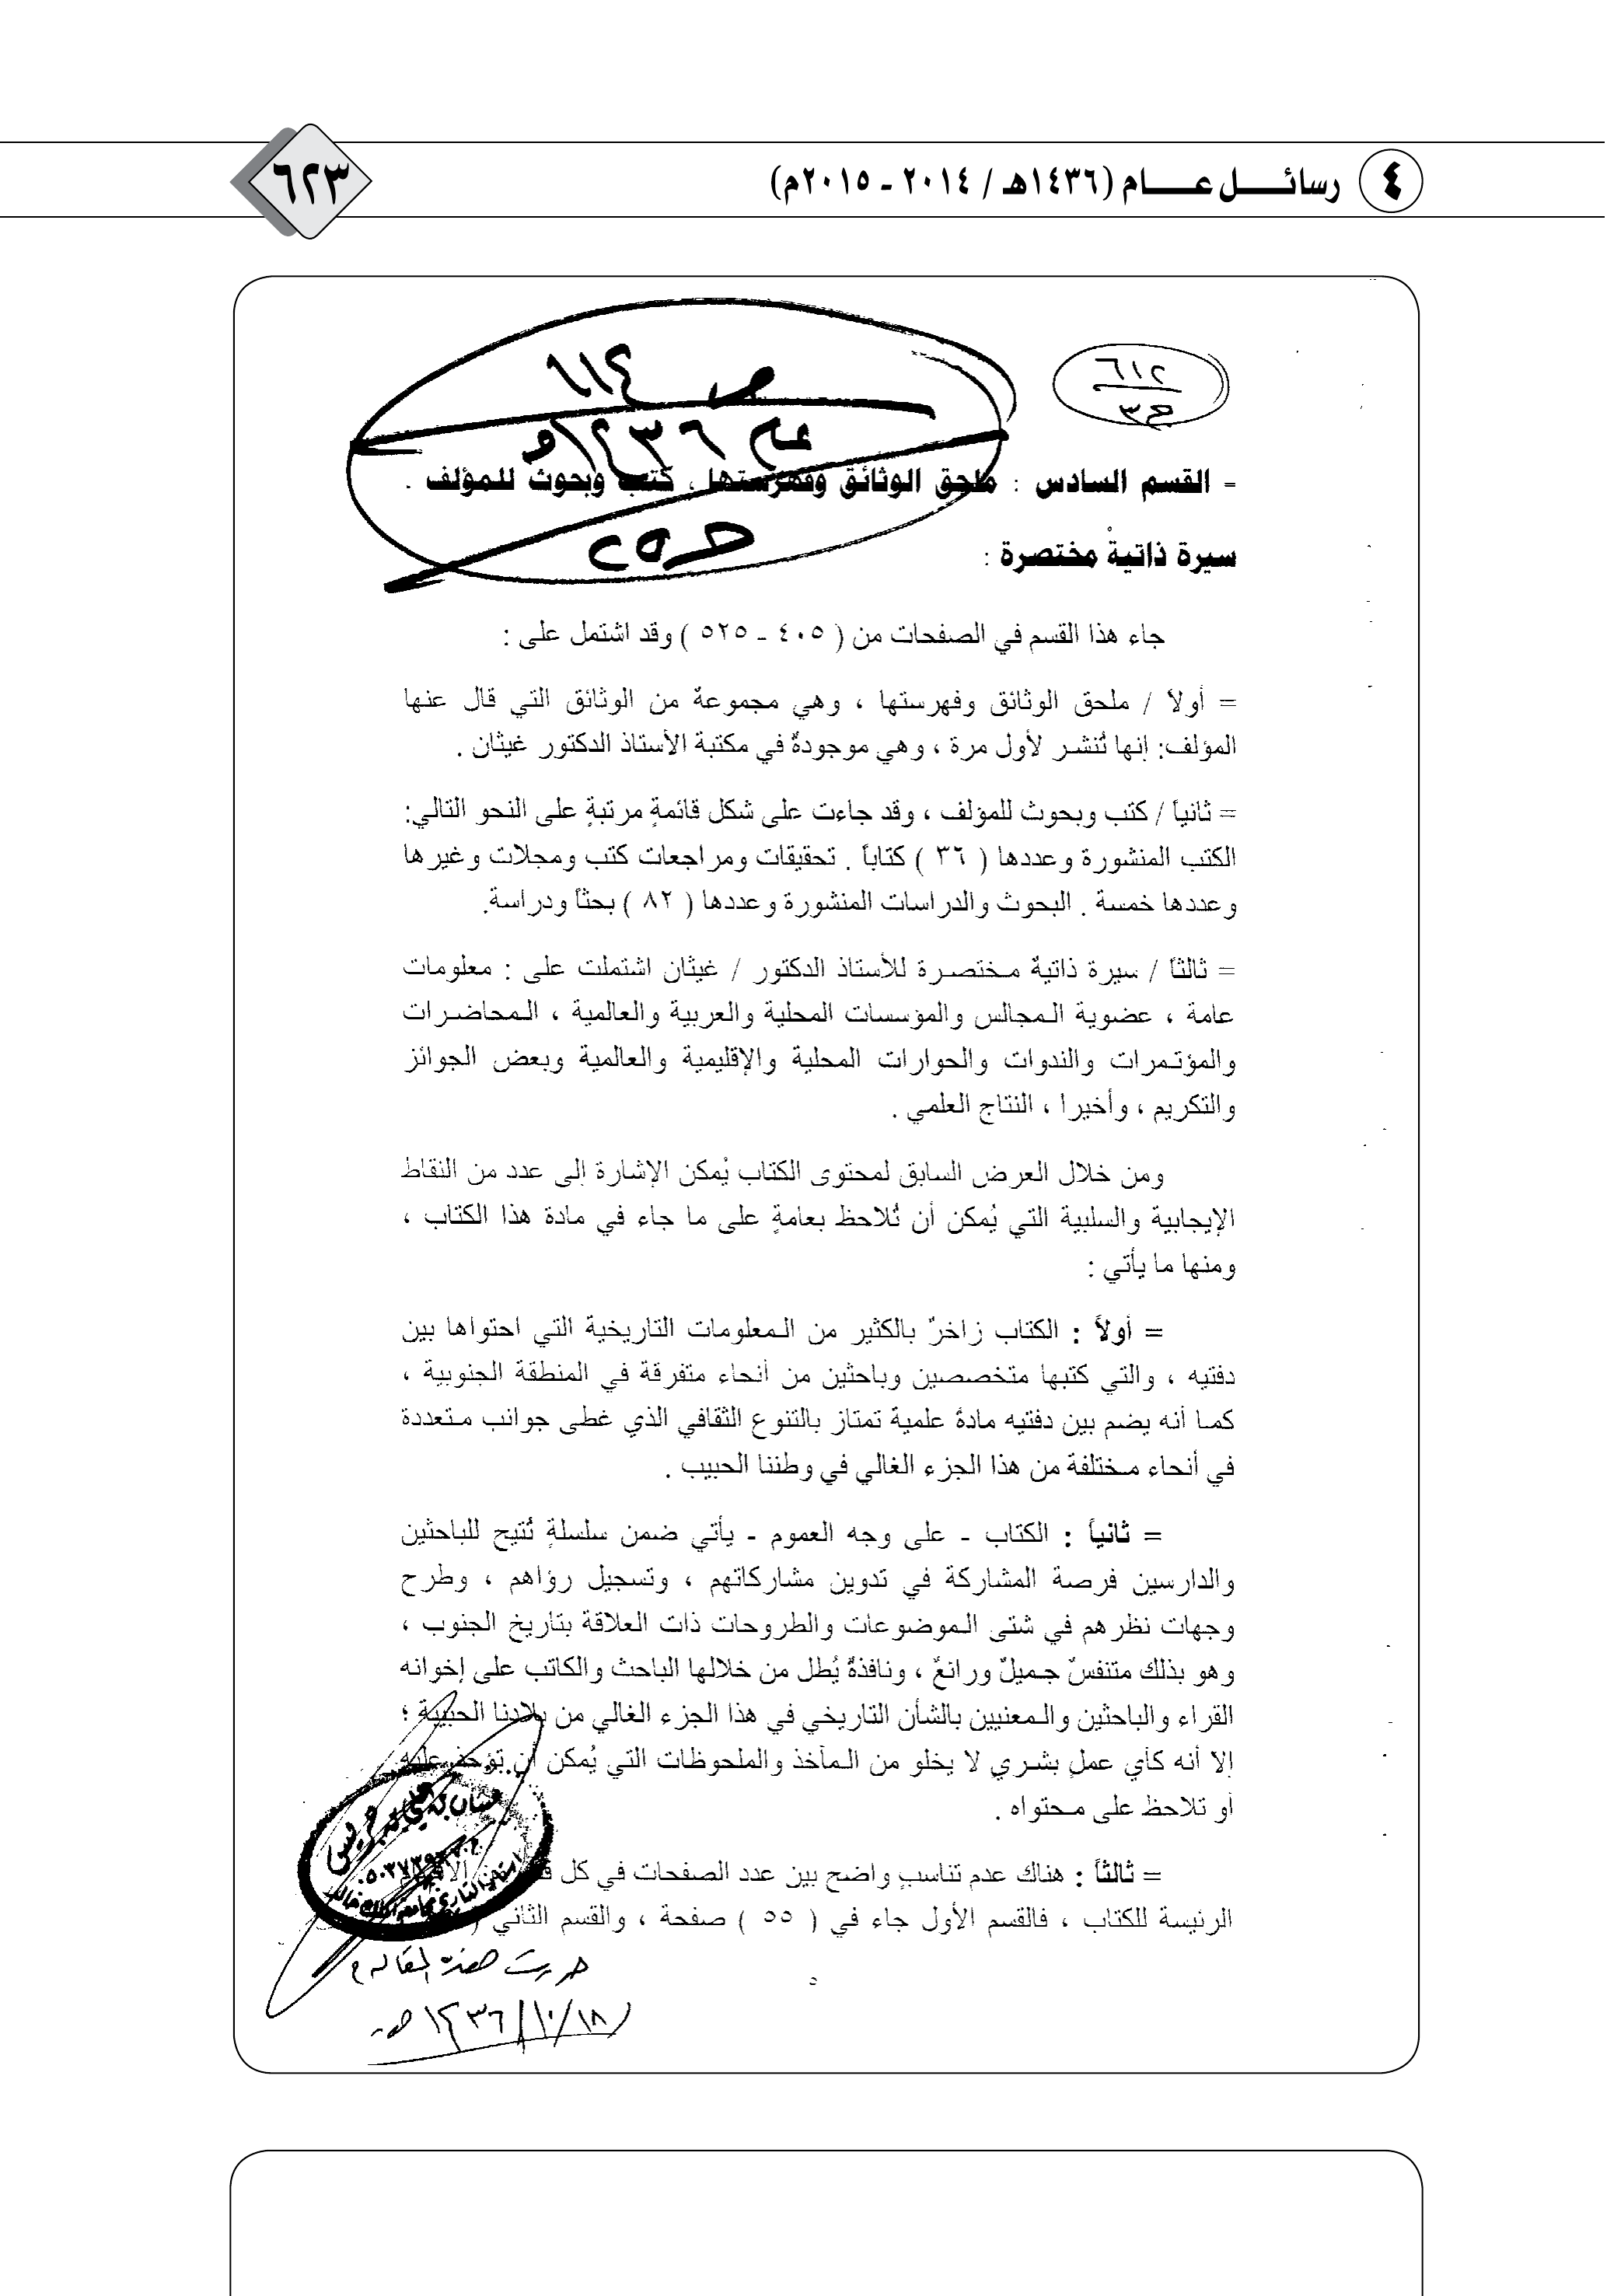 ٤ رسائــــل عـــــام (١٤٣٦هـ / ٢٠١٤ - ٢٠١٥م)
٦٢٣
٦١٢
ح٣
ص ٦١٤
عام ١٤٣٦هـ
ح٥٢
- القسم السادس : ملحق الوثائق وفهرستها ، كتب وبحوث للمؤلف .
سيرة ذاتية مختصرة :
جاء هذا القسم في الصفحات من ( ٤٠٥ - ٥٢٥ ) وقد اشتمل على :
= أولاً / ملحق الوثائق وفهرستها ، وهي مجموعةٌ من الوثائق التي قال عنها
المؤلف: إنها تُنشر لأول مرة ، وهي موجودةٌ في مكتبة الأستاذ الدكتور غيثان .
= ثانياً / كتب وبحوث للمؤلف ، وقد جاءت على شكل قائمةٍ مرتبةٍ على النحو التالي:
الكتب المنشورة وعددها ( ٣٦ ) كتاباً . تحقيقات ومراجعات كتب ومجلات وغيرها
وعددها خمسة . البحوث والدراسات المنشورة وعددها ( ٨٢ ) بحثاً ودراسة.
= ثالثاً / سيرة ذاتيةٌ مختصرة للأستاذ الدكتور / غيثان اشتملت على : معلومات
عامة ، عضوية المجالس والمؤسسات المحلية والعربية والعالمية ، المحاضرات
والمؤتمرات والندوات والحوارات المحلية والإقليمية والعالمية وبعض الجوائز
والتكريم ، وأخيرا ، النتاج العلمي .
ومن خلال العرض السابق لمحتوى الكتاب يُمكن الإشارة إلى عدد من النقاط
الإيجابية والسلبية التي يُمكن أن تُلاحظ بعامةٍ على ما جاء في مادة هذا الكتاب ،
ومنها ما يأتي :
= أولاً : الكتاب زاخرٌ بالكثير من المعلومات التاريخية التي احتواها بين
دفتيه ، والتي كتبها متخصصين وباحثين من أنحاء متفرقة في المنطقة الجنوبية ،
كما أنه يضم بين دفتيه مادةً علميةً تمتاز بالتنوع الثقافي الذي غطى جوانب متعددة
في أنحاء مختلفة من هذا الجزء الغالي في وطننا الحبيب .
= ثانياً : الكتاب - على وجه العموم - يأتي ضمن سلسلةٍ تُتيح للباحثين
والدارسين فرصة المشاركة في تدوين مشاركاتهم ، وتسجيل رؤاهم ، وطرح
وجهات نظرهم في شتى الموضوعات والطروحات ذات العلاقة بتاريخ الجنوب ،
وهو بذلك متنفسٌ جميلٌ ورائعٌ ، ونافذةٌ يُطل من خلالها الباحث والكاتب على إخوانه
القراء والباحثين والمعنيين بالشأن التاريخي في هذا الجزء الغالي من بلادنا الحبيبة ؛
إلا أنه كأي عملٍ بشريٍ لا يخلو من المآخذ والملحوظات التي يُمكن أن تؤخذ عليه
أو تلاحظ على محتواه .
= ثالثاً : هناك عدم تناسبٍ واضح بين عدد الصفحات في كل
الرئيسة للكتاب ، فالقسم الأول جاء في ( ٥٥ ) صفحة ، والقسم الثاني (
غيثان بن علي بن جريس
أستاذ التاريخ بجامعة الملك خالد
٥
حررت هذه المقالة في
١٤٣٦/١٠/١٨هـ